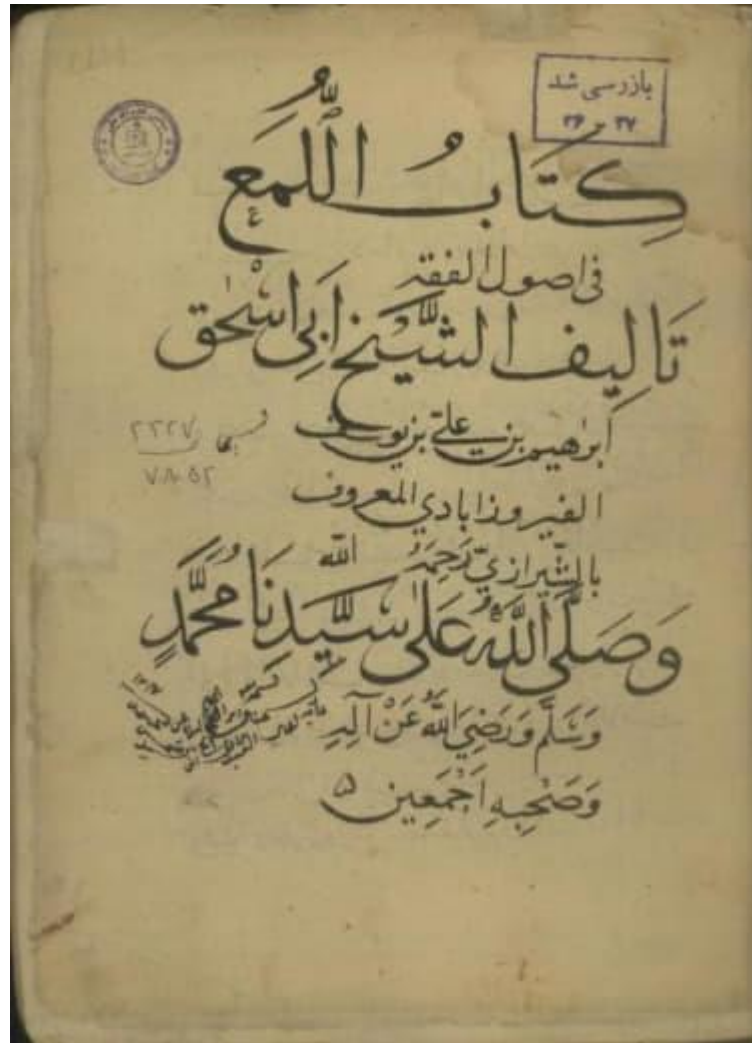 بازرسی شد
۳۶ - ۳۷
كِتَابُ اللُّمَع
في اصول الفقه
تَالِيف الشَّيْخ اَبِي اسْحٰق
ابرٰهيم بن علي بن يوسف
۲۲۲۷
۷۸۵۲
الفيروزابادي المعروف
بالشّيرازيّ رَحِمَهُ الله
وَصَلَّى اللهُ عَلى سَيِّدِنَا مُحَمَّدٍ
وَسَلَّم وَرَضِيَ اللهُ عَنْ آلِهِ
وَصَحْبِهِ اَجْمَعِين ۵